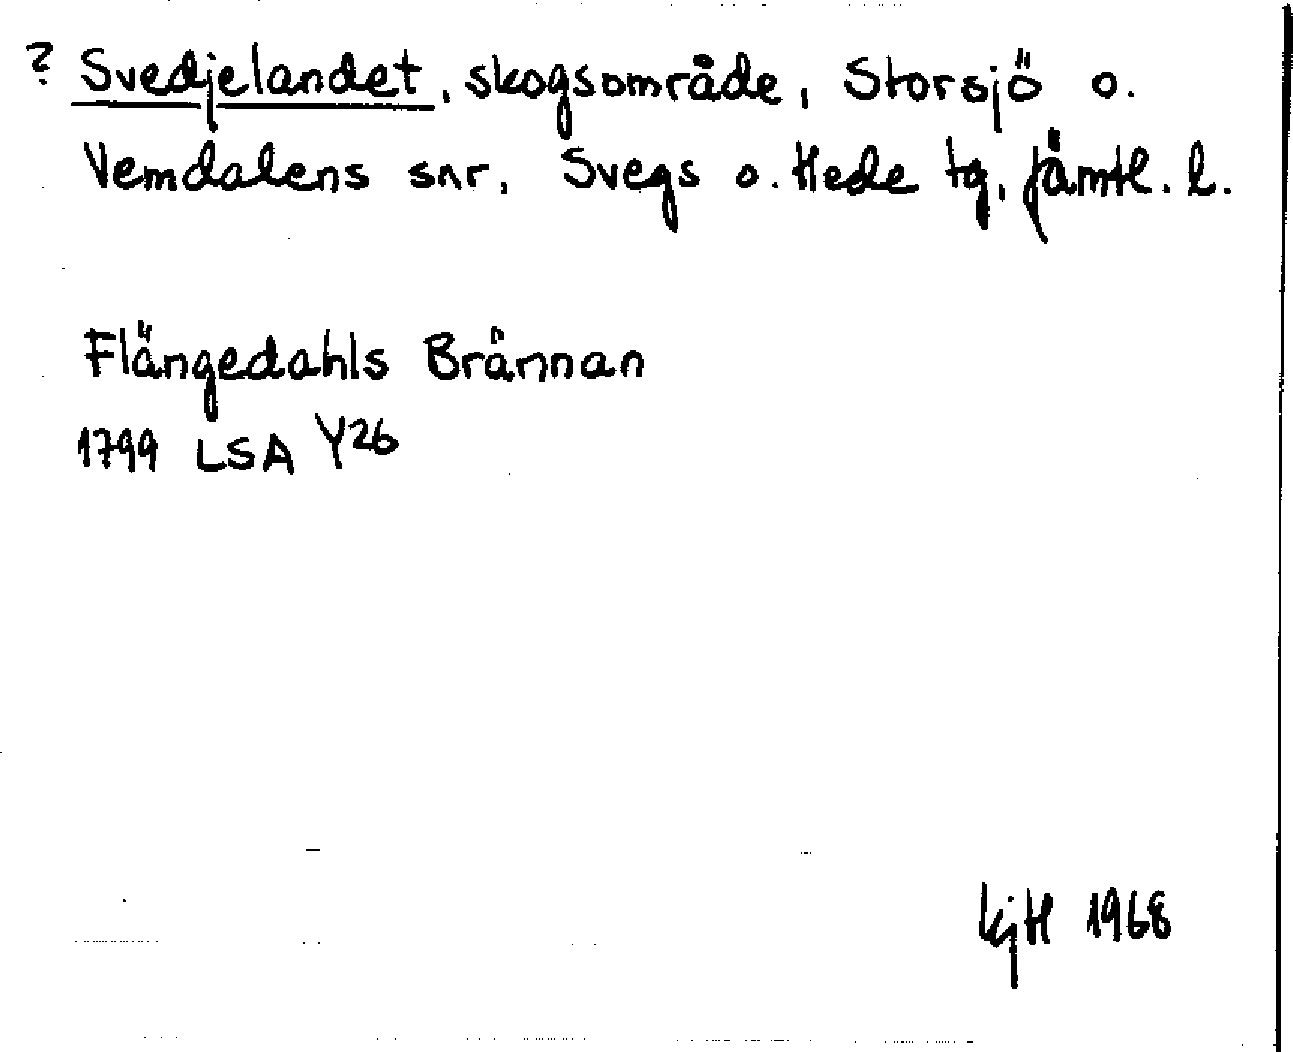 ? Svedjelandet, skogsområde, Storsjö o.
Vemdalens snr, Svegs o. Hede tg, Jämtl. l.
Flängedahls Brännan
1799 LSA Y26
kjH 1968